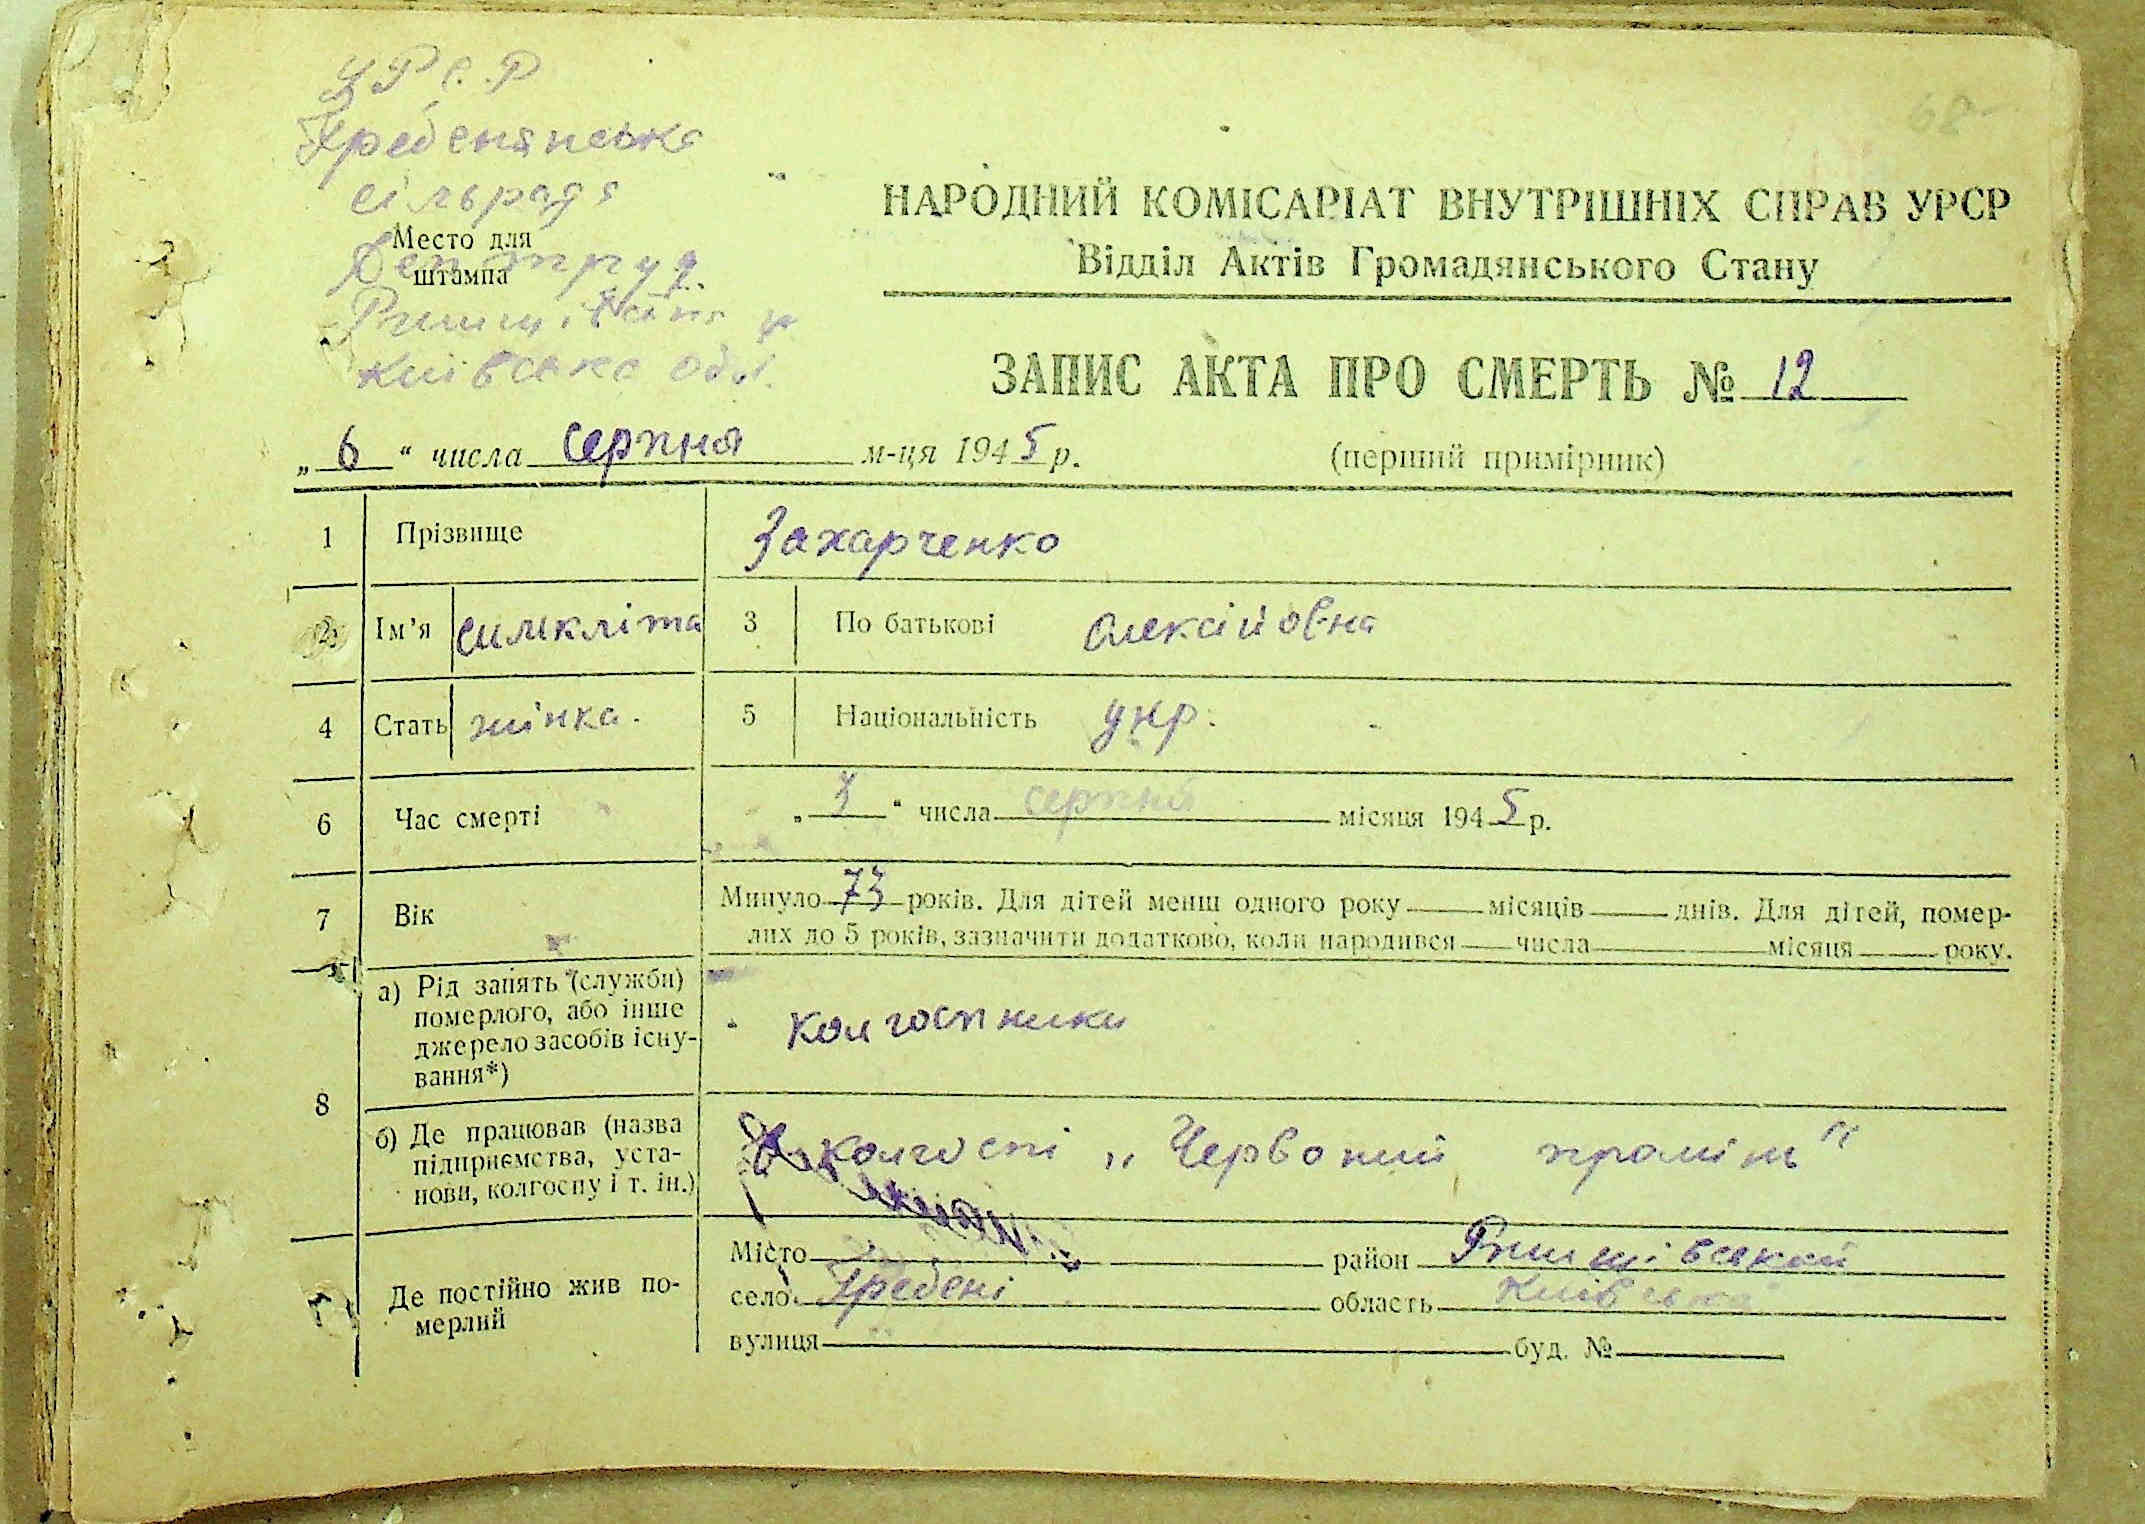 УРСР
Гребенянська
сільрада
Место для
штампа
Ржищівськ р
Київська обл.
68
НАРОДНИЙ КОМІСАРІАТ ВНУТРІШНІХ СПРАВ УРСР
Відділ Актів Громадянського Стану
ЗАПИС АКТА ПРО СМЕРТЬ № 12
„ 6 “ числа серпня м-ця 1945 р.
(перший примірник)
1 Прізвище Захарченко
2 Ім’я симкліта 3 По батькові Олексійовна
4 Стать жінка. 5 Національність укр.
6 Час смерті „ 3 “ числа серпня місяця 1945 р.
7 Вік Минуло 73 років. Для дітей менш одного року місяців днів. Для дітей, помер-
лих до 5 років, зазначити додатково, коли народився числа місяця року.
8 а) Рід занять (служби)
померлого, або інше
джерело засобів існу-
вання*)
колгоспника
б) Де працював (назва
підприємства, уста-
нови, колгоспу і т. ін.)
колгоспі „Червоний промінь"
Де постійно жив по-
мерлий
Місто район Ржищівський
село Гребені область Київська
вулиця буд. №